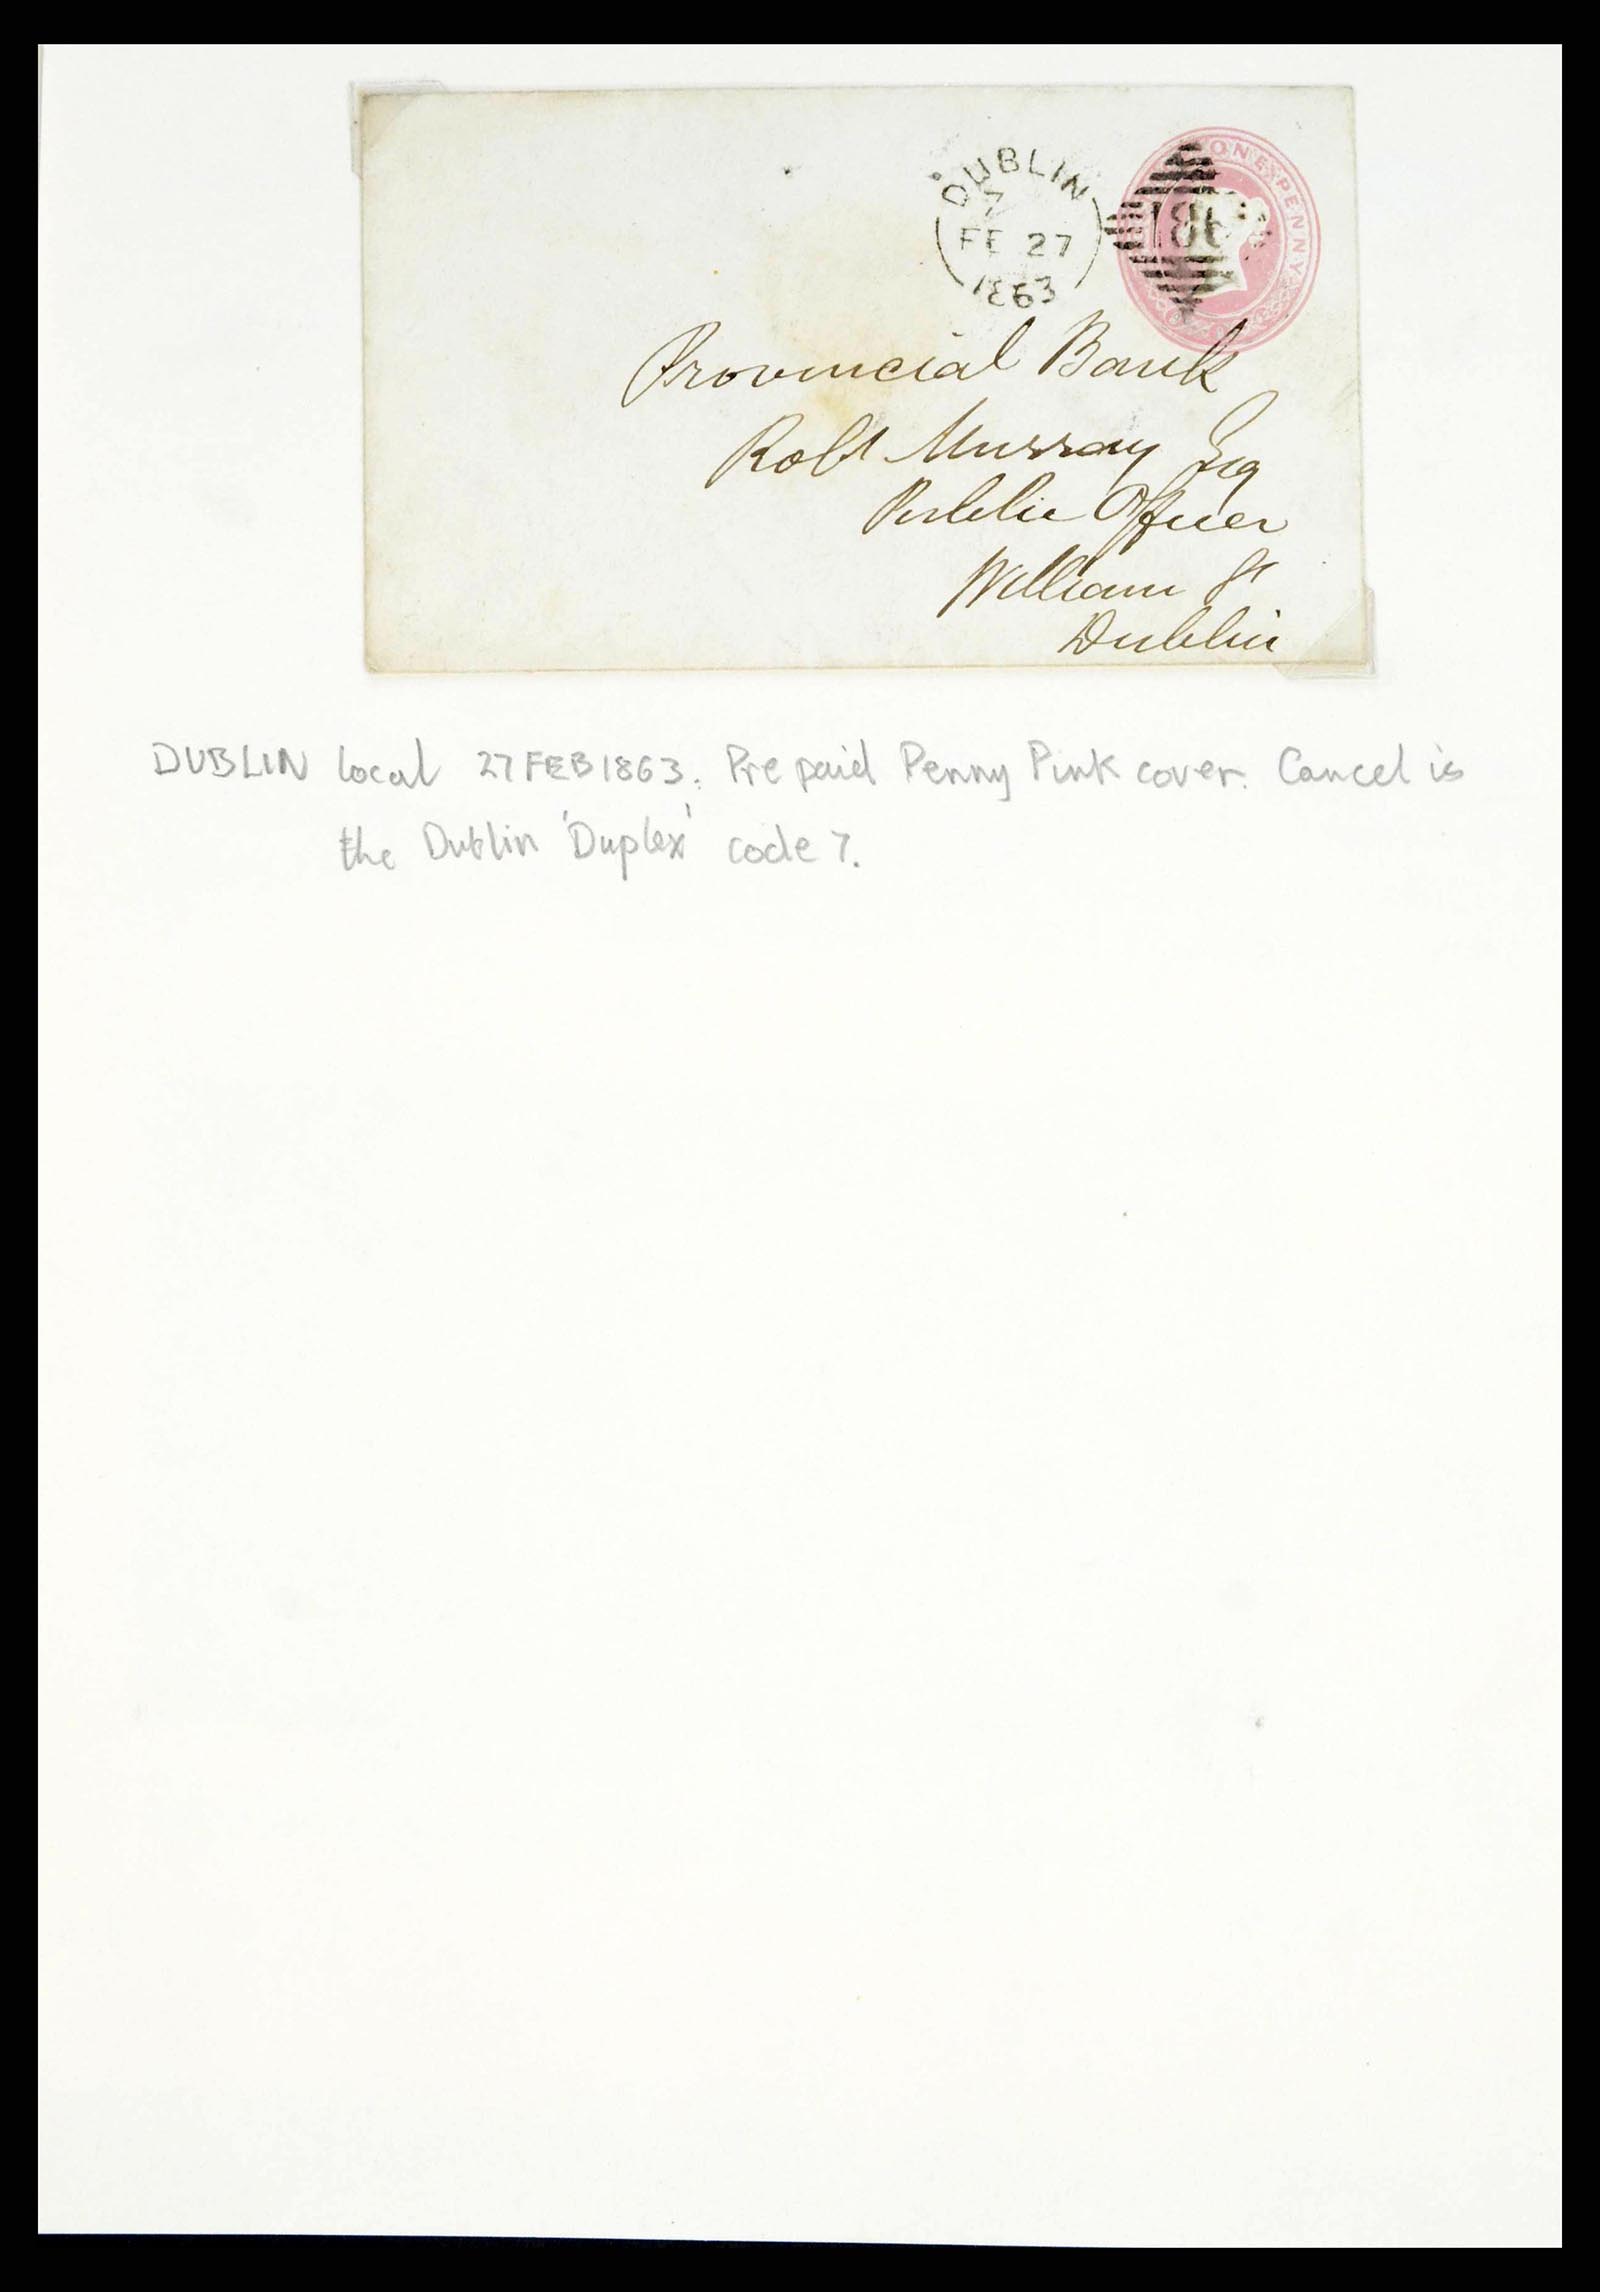 DUBLIN
7
FE 27
1863
ONE PENNY
186
Provincial Bank
Robt Murray Esq
Public Officer
William St
Dublin
DUBLIN local 27 FEB 1863. Prepaid Penny Pink cover. Cancel is
the Dublin 'Duplex' code 7.